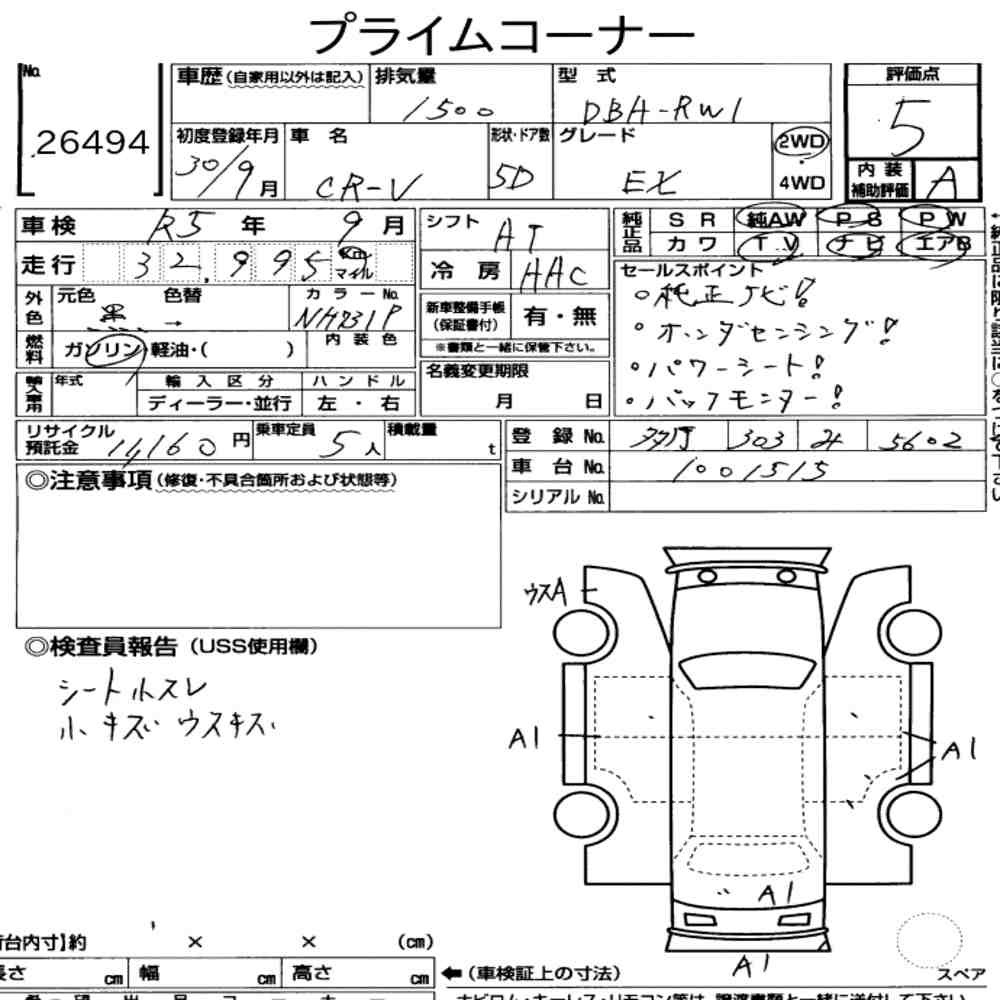 プライムコーナー
No. 26494
車歴(自家用以外は記入) 排気量 1500 型式 DBA-RW1 評価点 5
初度登録年月 30/9月 車名 CR-V 形状・ドア数 5D グレード EX 2WD・4WD 内装補助評価 A
車検 R5年 9月
走行 32,995 Km マイル
外色 元色 黒 色替 → カラーNo. NH731P
燃料 ガソリン・軽油・( ) 内装色
輸入車用 年式 輸入区分 ディーラー・並行 ハンドル 左・右
リサイクル預託金 14,160円 乗車定員 5人 積載量 t
シフト AT
冷房 AAC
新車整備手帳(保証書付) 有・無
※書類と一緒に保管下さい。
名義変更期限 月 日
純正品 SR 純AW PS PW
カワ TV ナビ エアB
セールスポイント
○純正ナビ!
・ホンダセンシング!
・パワーシート!
・バックモニター!
登録No. 303 5602
車台No. 1001515
シリアルNo.
◎注意事項(修復・不具合箇所および状態等)
◎検査員報告(USS使用欄)
シート小スレ
小キズ ウスキズ
ウスA
A1
A1
A1
A1
台内寸】約 × × (cm)
長さ cm 幅 cm 高さ cm
←(車検証上の寸法)
スペア